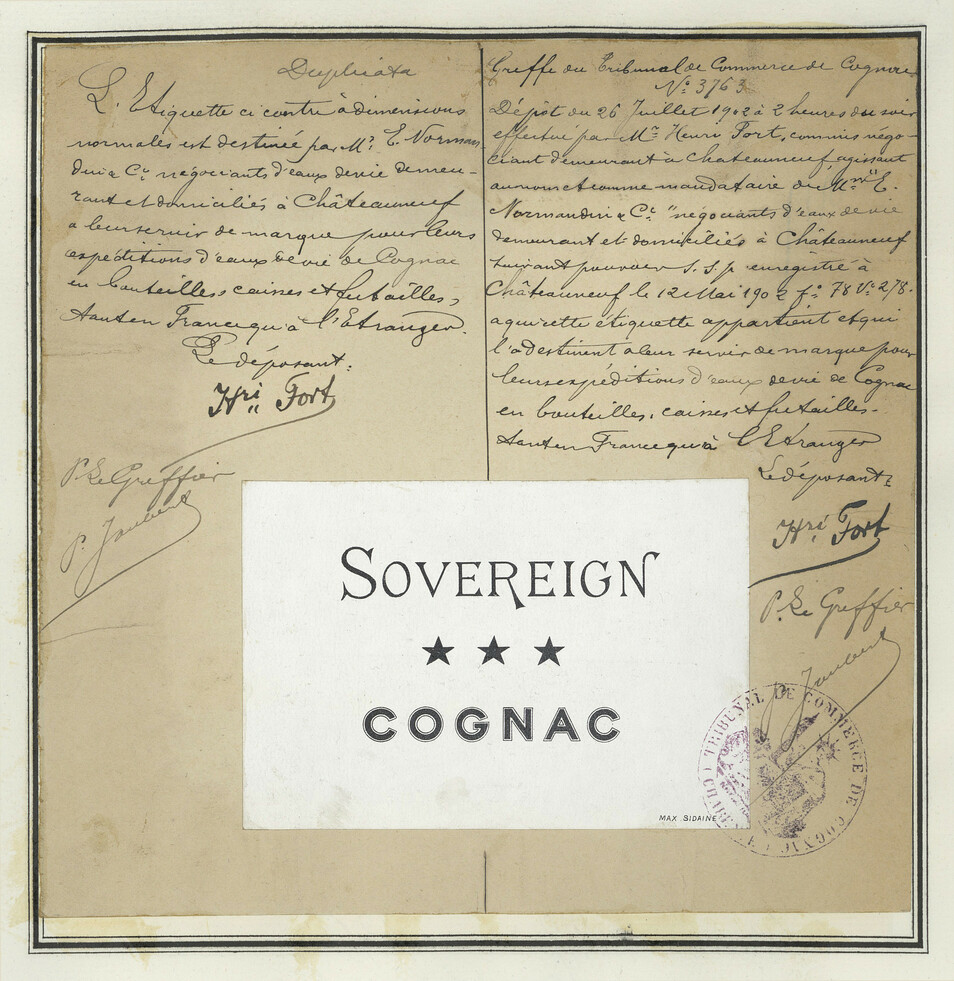 Duplicata
L'Etiquette ci contre à dimensions
normales est destinée par Mr. E. Norman
din & Cie négociants d'eaux de vie demeu-
rant et domiciliés à Châteauneuf
a leur servir de marque pour leurs
expéditions d'eaux de vie de Cognac
en bouteilles, caisses et futailles,
tant en France qu'à l'Etranger.
Le déposant:
Hri Fort
P. Le Greffier
P. Jaubert
Greffe du Tribunal de Commerce de Cognac
No. 3763
Dépôt du 26 Juillet 1902 à 2 heures du soir
effectué par Mr Henri Fort, commis négo-
ciant demeurant à Chateauneuf agissant
au nom et comme mandataire de Mm "E.
Normandin & Cie" négociants d'eaux de vie
demeurant et domiciliés à Châteauneuf
suivant pouvoir s.s.p. enregistré à
Châteauneuf le 12 Mai 1902 fo 78 Vo 278.
a qui cette étiquette appartient et qui
l'a destinent a leur servir de marque pour
leurs expéditions d'eaux de vie de Cognac
en bouteilles, caisses et futailles.
tant en France qu'à l'Etranger
Le déposant:
Hri Fort
P. Le Greffier
P. Jaubert
SOVEREIGN
★ ★ ★
COGNAC
MAX SIDAINE
TRIBUNAL DE COMMERCE DE COGNAC